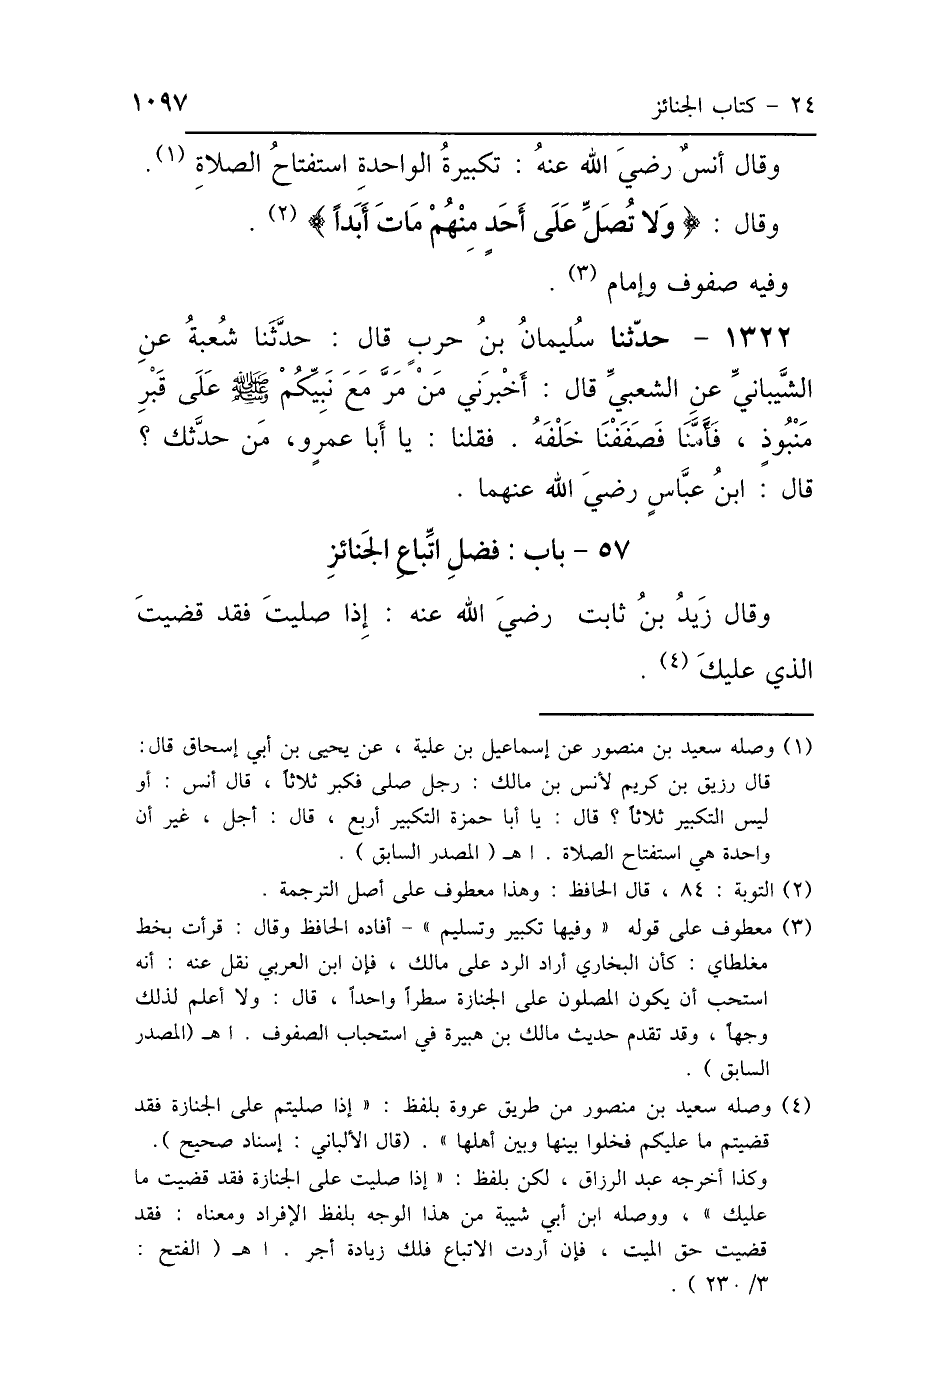 ٢٤ - كتاب الجنائز ١٠٩٧
وقال أنسٌ رضيَ الله عنهُ : تكبيرةُ الواحدةِ استفتاحُ الصلاةِ (١).
وقال : ﴿ وَلا تُصَلِّ عَلَى أَحَدٍ مِنْهُمْ مَاتَ أَبَداً ﴾ (٢) .
وفيه صفوف وإمام (٣) .
١٣٢٢ - حدّثنا سُليمانُ بنُ حربٍ قال : حدَّثَنا شُعبةُ عنِ
الشَّيبانيِّ عنِ الشعبيِّ قال : أَخْبرَني مَنْ مَرَّ مَعَ نَبِيِّكُمْ ﷺ عَلَى قَبْرٍ
مَنْبُوذٍ ، فَأَمَّنَا فَصَفَفْنَا خَلْفَهُ . فقلنا : يا أَبا عمرٍو، مَن حدَّثك ؟
قال : ابنُ عبَّاسٍ رضيَ الله عنهما .
٥٧ - باب : فضلِ اتِّباعِ الجَنائزِ
وقال زَيدُ بنُ ثابت رضيَ الله عنه : إِذا صليتَ فقد قضيتَ
الذي عليكَ (٤) .
(١) وصله سعيد بن منصور عن إسماعيل بن علية ، عن يحيى بن أبي إسحاق قال:
قال رزيق بن كريم لأنس بن مالك : رجل صلى فكبر ثلاثاً ، قال أنس : أو
ليس التكبير ثلاثاً ؟ قال : يا أبا حمزة التكبير أربع ، قال : أجل ، غير أن
واحدة هي استفتاح الصلاة . ا هـ ( المصدر السابق ) .
(٢) التوبة : ٨٤ ، قال الحافظ : وهذا معطوف على أصل الترجمة .
(٣) معطوف على قوله « وفيها تكبير وتسليم » - أفاده الحافظ وقال : قرأت بخط
مغلطاي : كأن البخاري أراد الرد على مالك ، فإن ابن العربي نقل عنه : أنه
استحب أن يكون المصلون على الجنازة سطراً واحداً ، قال : ولا أعلم لذلك
وجهاً ، وقد تقدم حديث مالك بن هبيرة في استحباب الصفوف . ا هـ (المصدر
السابق ) .
(٤) وصله سعيد بن منصور من طريق عروة بلفظ : « إذا صليتم على الجنازة فقد
قضيتم ما عليكم فخلوا بينها وبين أهلها » . (قال الألباني : إسناد صحيح ).
وكذا أخرجه عبد الرزاق ، لكن بلفظ : « إذا صليت على الجنازة فقد قضيت ما
عليك » ، ووصله ابن أبي شيبة من هذا الوجه بلفظ الإفراد ومعناه : فقد
قضيت حق الميت ، فإن أردت الاتباع فلك زيادة أجر . ا هـ ( الفتح :
٣/ ٢٣٠ ) .